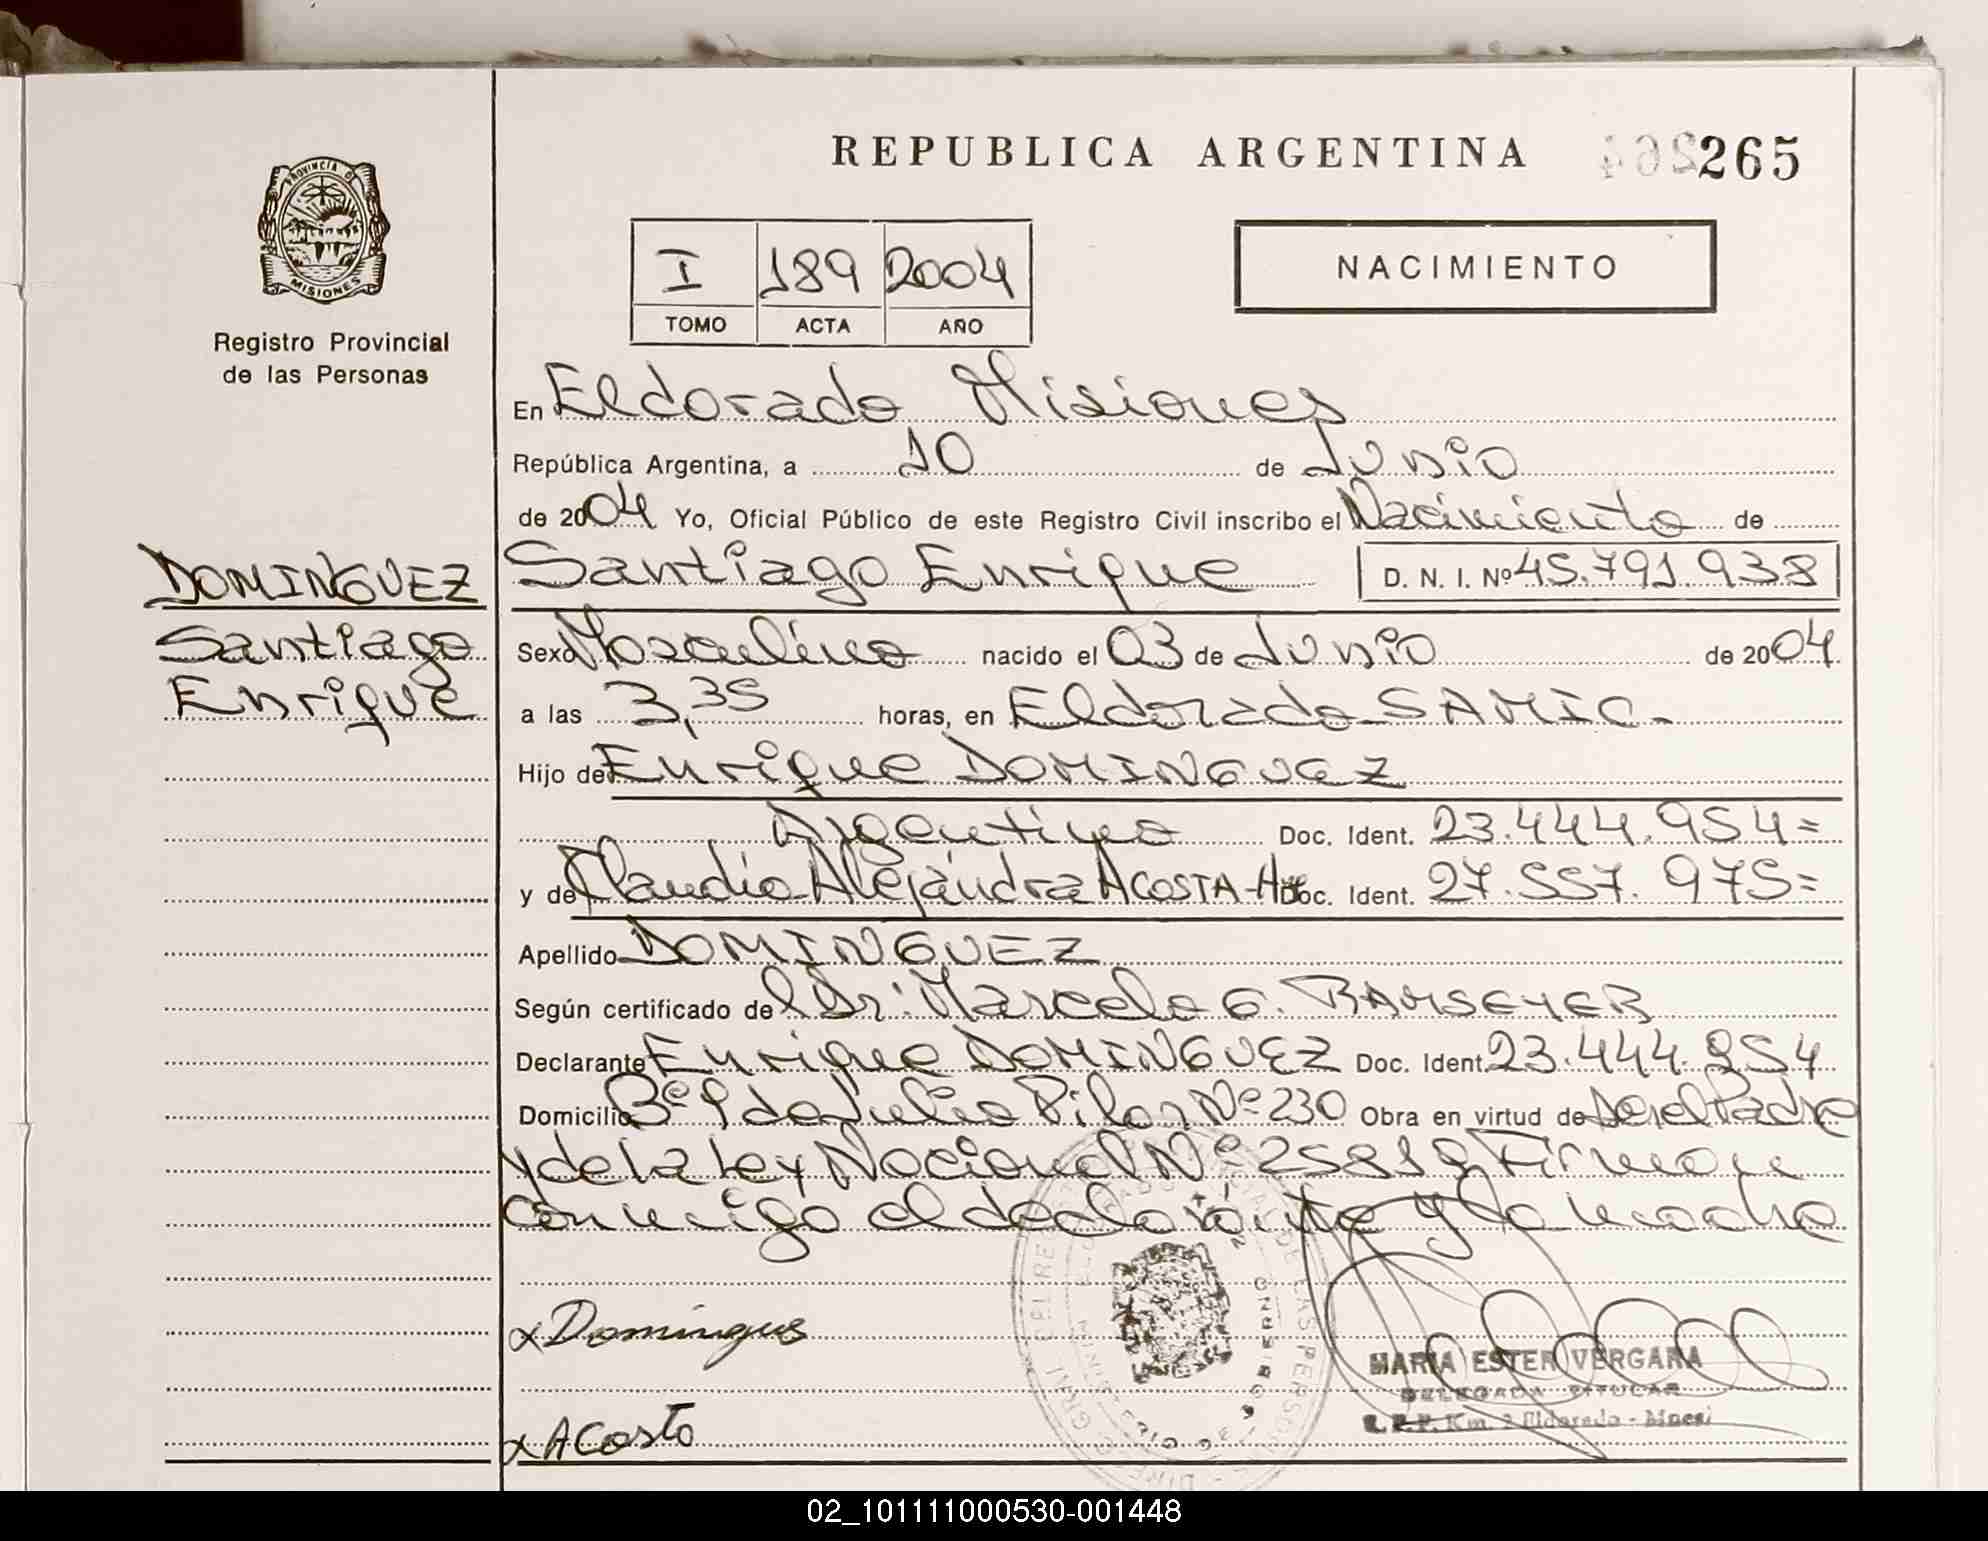 REPUBLICA ARGENTINA 265
PROVINCIA DE
MISIONES
Registro Provincial
de las Personas
I 189 2004
TOMO ACTA AÑO
NACIMIENTO
En Eldorado Misiones
República Argentina, a 10 de Junio
de 2004 Yo, Oficial Público de este Registro Civil inscribo el Nacimiento de
DOMINGUEZ
Santiago
Enrique
Santiago Enrique D. N. I. Nº 45.791.938
Sexo Masculino nacido el 03 de Junio de 2004
a las 3,35 horas, en Eldorado SAMIC.
Hijo de Enrique DOMINGUEZ
Argentino Doc. Ident. 23.444.954=
y de Claudia Alejandra ACOSTA Doc. Ident. 27.557.975=
Apellido DOMINGUEZ
Según certificado de l Dr. Marcelo G. RAMSEYER
Declarante Enrique DOMINGUEZ Doc. Ident. 23.444.954
Domicilio Bº 9 de Julio Pilar Nº 230 Obra en virtud de Ser el Padre
y de la Ley Nacional Nº 25819 Firman
Conmigo el declarante y la madre
x Domingues
x Acosta
MARIA ESTER VERGARA
DELEGADA TITULAR
R.P.P. Km. 2 Eldorado - Mnes.
02_101111000530-001448